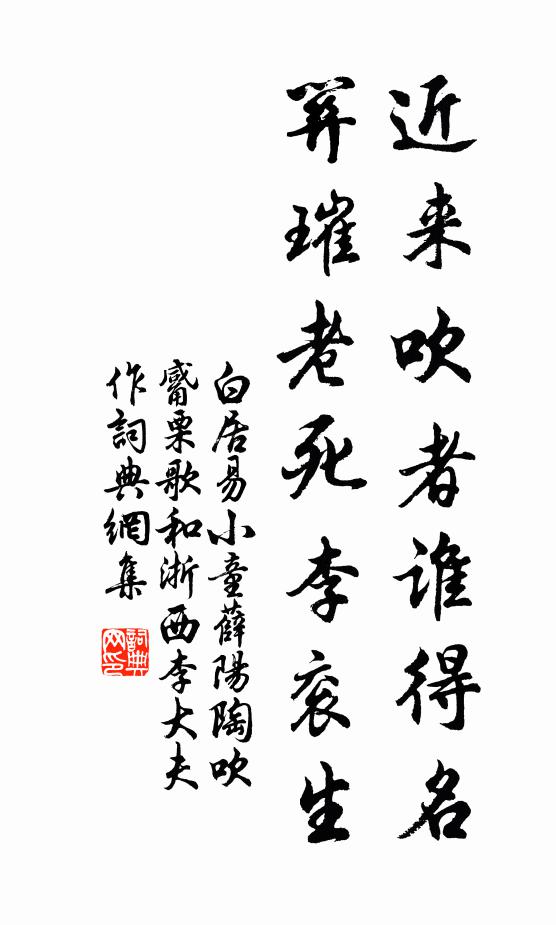 近来吹者谁得名
关璀老死李衮生
白居易小童薛陽陶吹
觱栗歌和浙西李大夫
作詞典網集
詞典网印